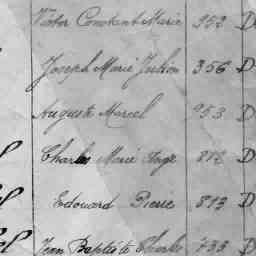 Victor Constant Marie 953 D
Joseph Marie Julien 356 D
Auguste Marcel 953 D
Charles Marie Ange 812 D
Edouard Pierre 813 D
Jean Baptiste Charles 733 D